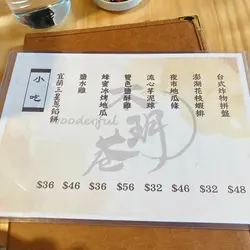 小吃
台式炸物拼盤
澎湖花枝蝦排
夜市地瓜條
流心芋泥球
雙色 酥雞
蜂蜜冰烤地瓜
鹽水雞
宜蘭三星蔥餡餅
$36 $46 $36 $56 $32 $46 $32 $48
Wooderful
玥
巷